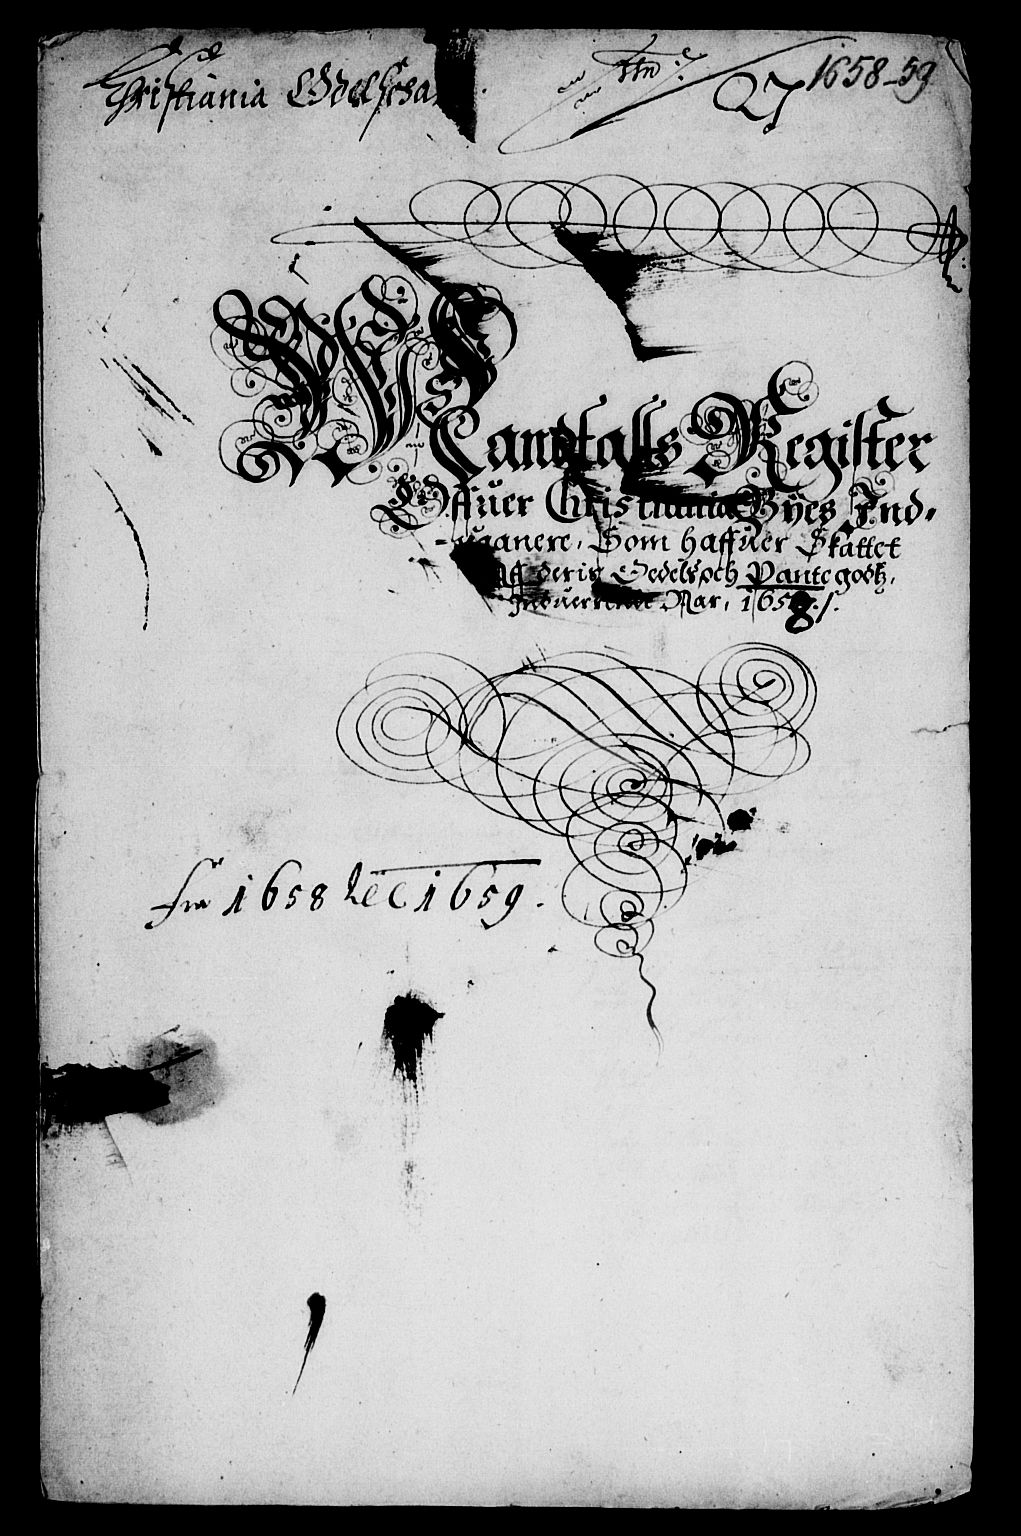 Christiania Odelsska
27 1658-59
Mandtalls Register
Offuer Christiania Byes Ind-
uaanere, Som haffuer Skattet
Aff deris Oedels och Pante godtz,
Induerrende Aar, 1658.
fra 1658 till 1659.